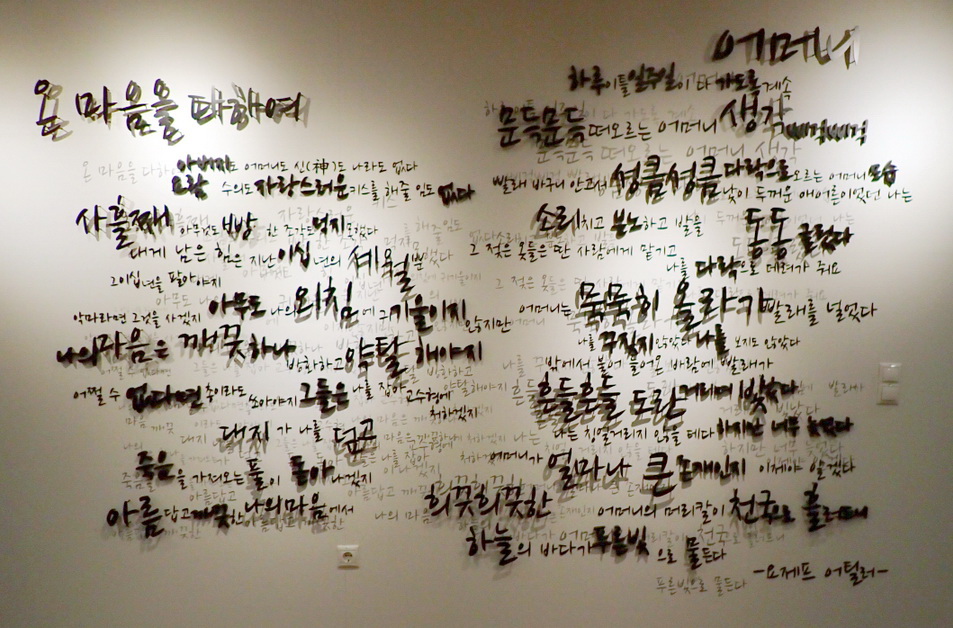 온 마음을 다하여
아버지도 어머니도 신(神)도 나라도 없다
요람 수의도 자랑스러운 키스를 해줄 임도 없다
사흘째 한 조각도 먹지 못했다
내게 남은 힘은 지난 이십 년의 세월뿐
그 이십 년을 팔아야지
악마라면 그것을 사겠지 아무도 나의 외침에 귀 기울이지 않지만
나의 마음은 깨끗하나 반항하고 약탈 해야지
어쩔 수 없다면 총이라도 쏘아야지 그들은 나를 잡아 교수형에 처하겠지
대지가 나를 덮고
죽음을 가져오는 풀이 돋아나겠지
아름답고 깨끗한 나의 마음에서
어머니
하루 이틀 일주일이 다 가도록 계속
문득문득 떠오르는 어머니 생각
삐걱삐걱
빨래 바구니 안고서 성큼성큼 다락으로 오르는 어머니 모습
낯이 두꺼운 애어른이었던 나는
소리치고 분노하고 발을 동동 굴렀다
그 젖은 옷들은 딴 사람에게 맡기고
나를 다락으로 데려가 줘요
어머니는 묵묵히 올라가 빨래를 널었다
나를 꾸짖지 않았다 나를 보지도 않았다
밖에서 불어 들어온 바람에 빨래가
흔들흔들 도란거리며 빛났다
나는 칭얼거리지 않을 테다 하지만 너무 늦었다
어머니가 얼마나 큰 존재인지 이제야 알겠다
희끗희끗한 어머니의 머리칼이 천국으로 흘러드니
하늘의 바다가 푸른빛으로 물든다
-요제프 어틸러-